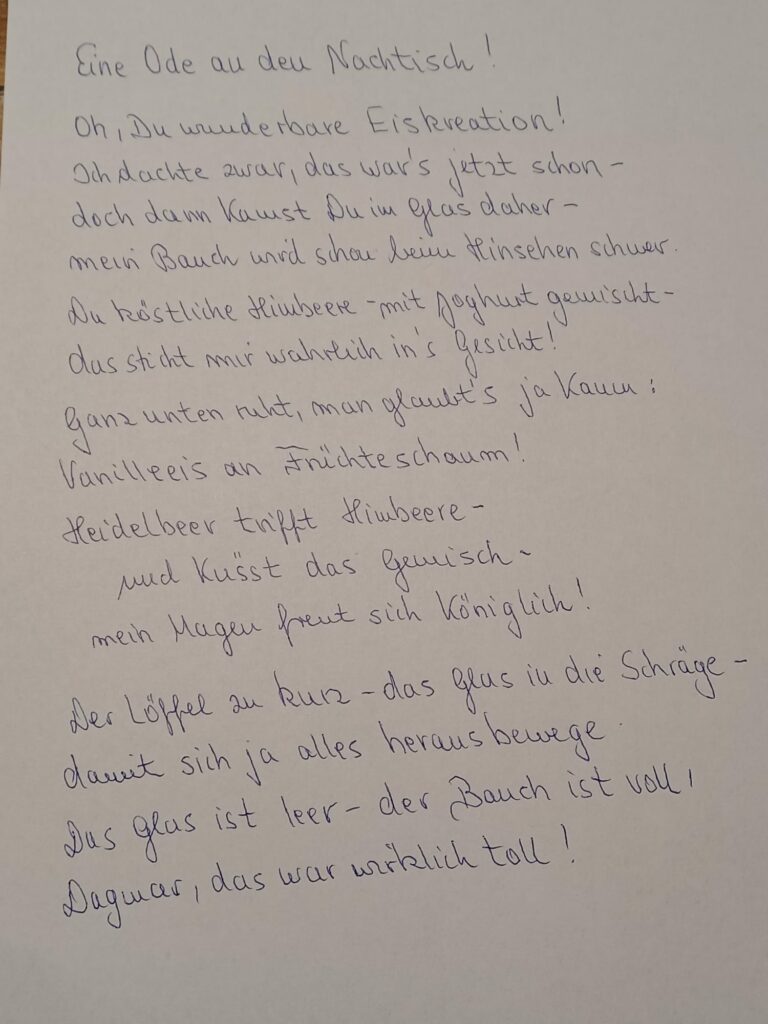 Eine Ode an den Nachtisch!
Oh, Du wunderbare Eiskreation!
Ich dachte zwar, das war's jetzt schon -
doch dann kamst Du im Glas daher -
mein Bauch wird schon beim Hinsehen schwer.
Du köstliche Himbeere - mit Joghurt gemischt -
das sticht mir wahrlich in's Gesicht!
Ganz unten ruht, man glaubt's ja kaum:
Vanilleeis an Früchteschaum!
Heidelbeer trifft Himbeere -
und küsst das Gemisch -
mein Magen freut sich königlich!
Der Löffel zu kurz - das Glas in die Schräge -
damit sich ja alles herausbewege.
Das Glas ist leer - der Bauch ist voll,
Dagmar, das war wirklich toll!